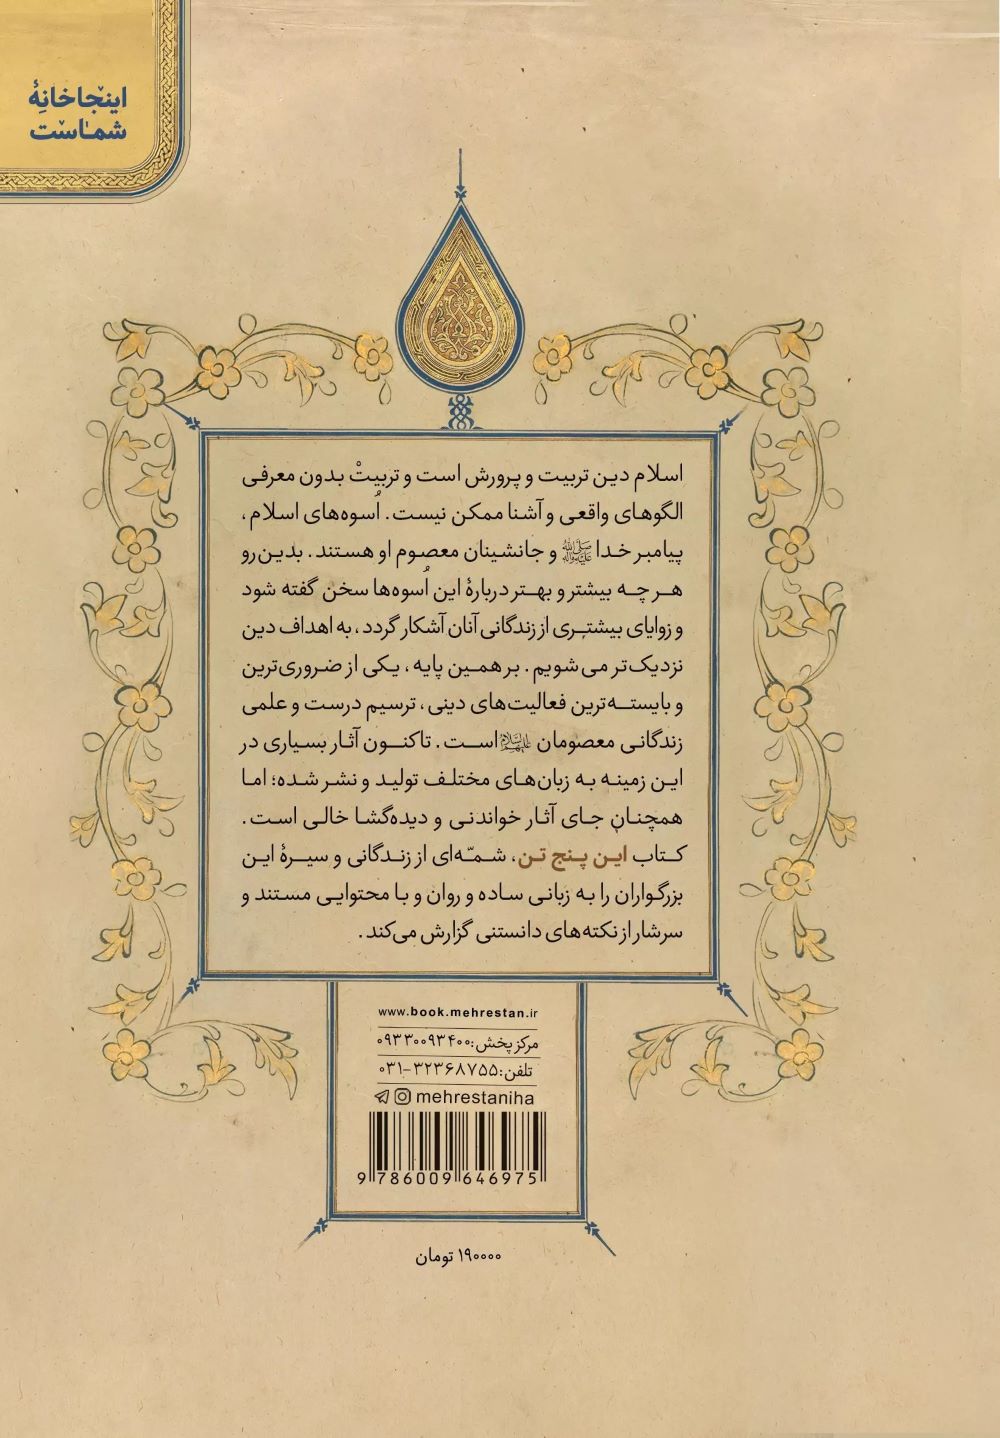 اینجا خانهٔ
شماست
اسلام دین تربیت و پرورش است و تربیتْ بدون معرفی
الگوهای واقعی و آشنا ممکن نیست. اُسوه‌های اسلام،
پیامبر خدا ﷺ و جانشینان معصوم او هستند. بدین‌رو
هر چه بیشتر و بهتر دربارهٔ این اُسوه‌ها سخن گفته شود
و زوایای بیشتری از زندگانی آنان آشکار گردد، به اهداف دین
نزدیک‌تر می‌شویم. بر همین پایه، یکی از ضروری‌ترین
و بایسته‌ترین فعالیت‌های دینی، ترسیم درست و علمی
زندگانی معصومان علیهم‌السلام است. تاکنون آثار بسیاری در
این زمینه به زبان‌های مختلف تولید و نشر شده؛ اما
همچنان جای آثار خواندنی و دیده‌گشا خالی است.
کتاب این پنج تن، شمّه‌ای از زندگانی و سیرهٔ این
بزرگواران را به زبانی ساده و روان و با محتوایی مستند و
سرشار از نکته‌های دانستنی گزارش می‌کند.
www.book.mehrestan.ir
مرکز پخش: ۰۹۳۳۰۰۹۳۴۰۰
تلفن: ۳۲۳۶۸۷۵۵-۰۳۱
mehrestaniha
9 786009 646975
۱۹۰۰۰۰ تومان